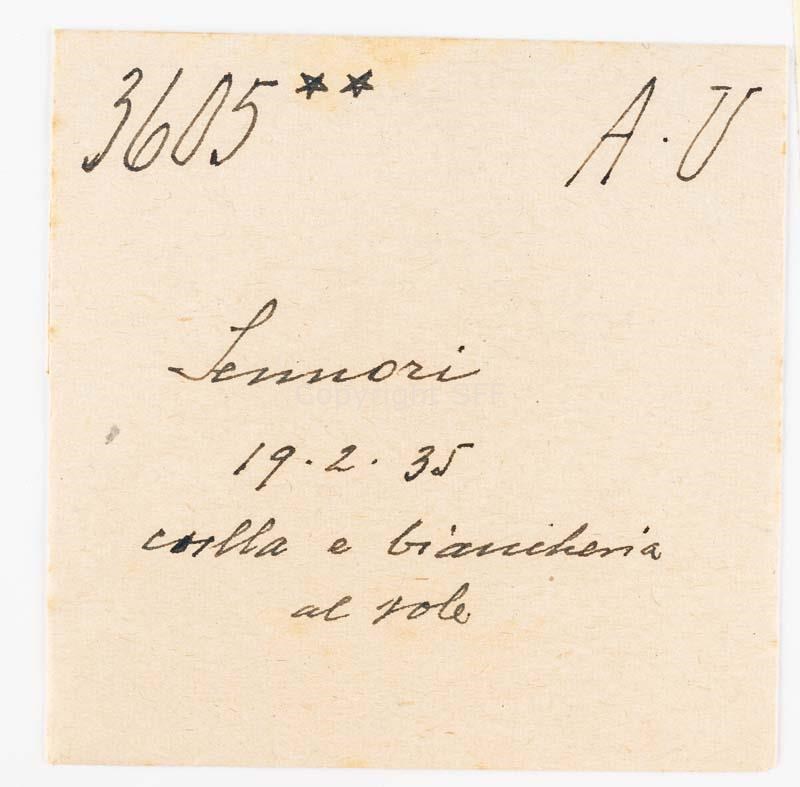 3605 ** A. U
Sennori
19. 2. 35
culla e biancheria
al sole
Copyright SFF